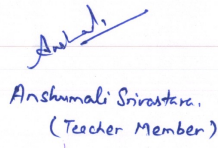 Anshumali Srivastava.
(Teacher Member)